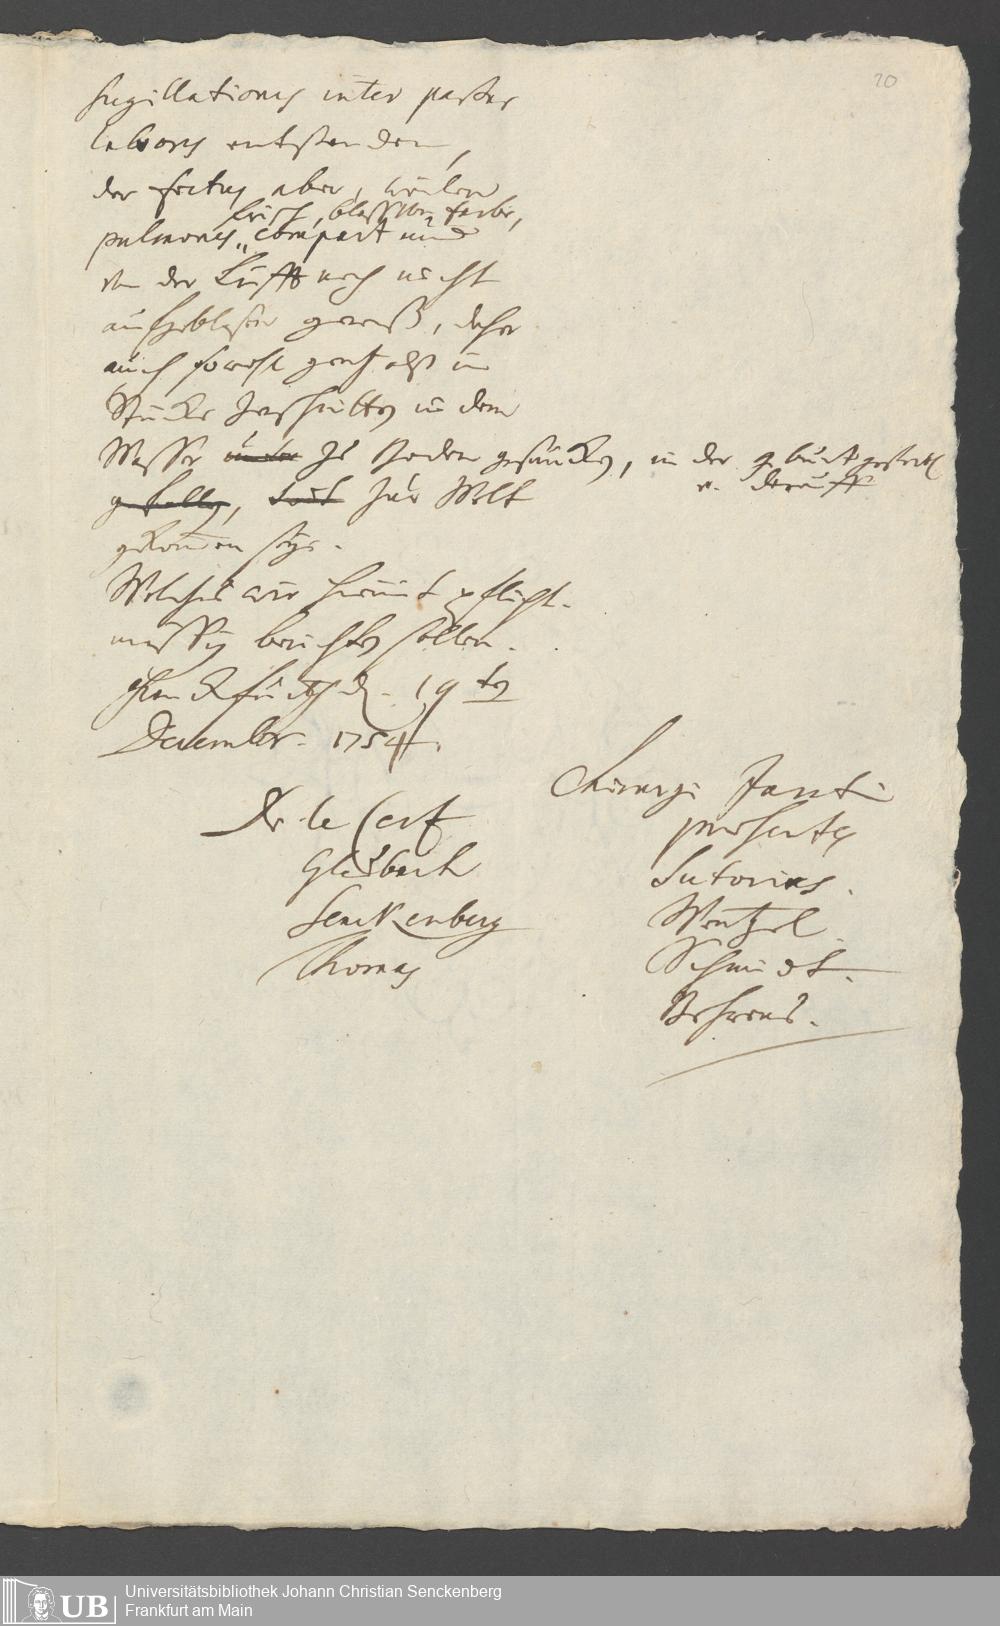 20
sugillationes inter partus
labores entstanden,
der foetus aber, weilen
frisch, blasser farbe,
pulmones compact und
von der Lufft noch nicht
aufgeblasen gewest, daher
auch sowohl gantz alß in
Stücke zerschnitten in dem
Wasser zu Boden gesuncken, in der geburt gesteckt
u. darauff
zur Welt
gekommen seye.
Welches wir hiermit pflicht-
mässig berichten sollen.
Franckfurth d. 19ten
December. 1754.
Dr. le Cerf
Gladbach
Senckenberg
Thomas
Chirurgi Jurati
praesentes
Sutorius.
Wentzel
Schmidt.
Behrens.
UB
Universitätsbibliothek Johann Christian Senckenberg
Frankfurt am Main